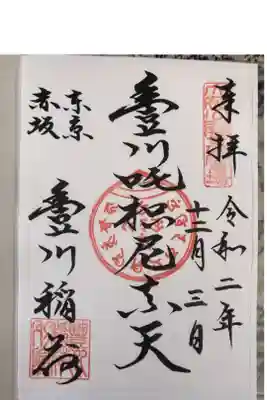 来拝
令和二年
十二月三日
豊川吒枳尼真天
东京
赤坂
豊川稲荷